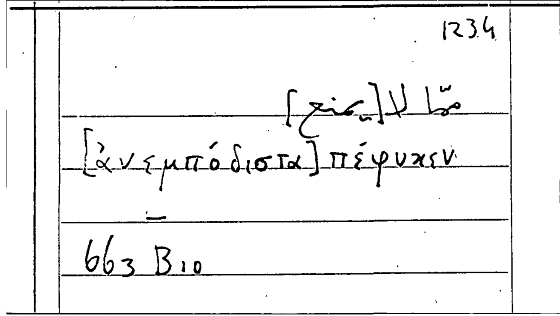 1234
لا
[ἀνεμπόδιστα] πέφυκεν
—
663 B10